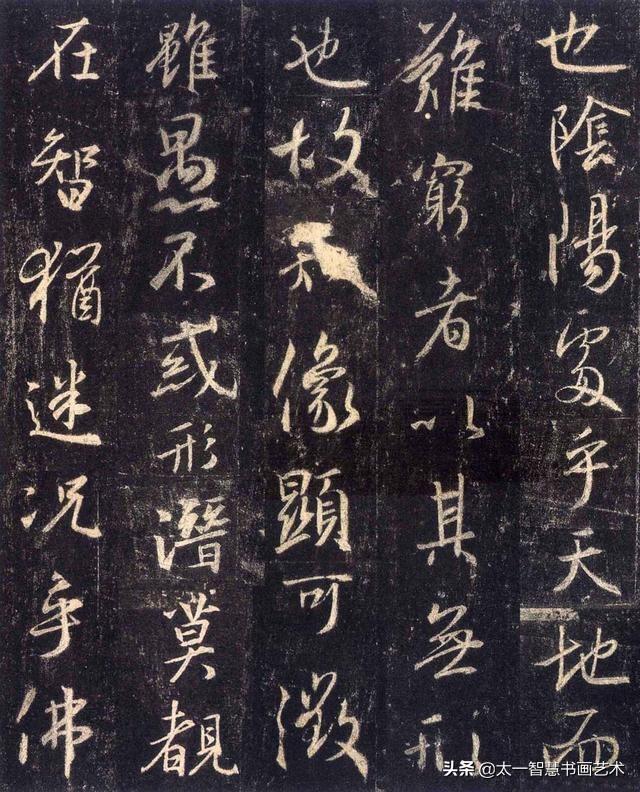 也陰陽處乎天地而
難窮者以其無形
也故像顯可徵
雖愚不惑形潛莫覩
在智猶迷況乎佛
头条 @太一智慧书画艺术